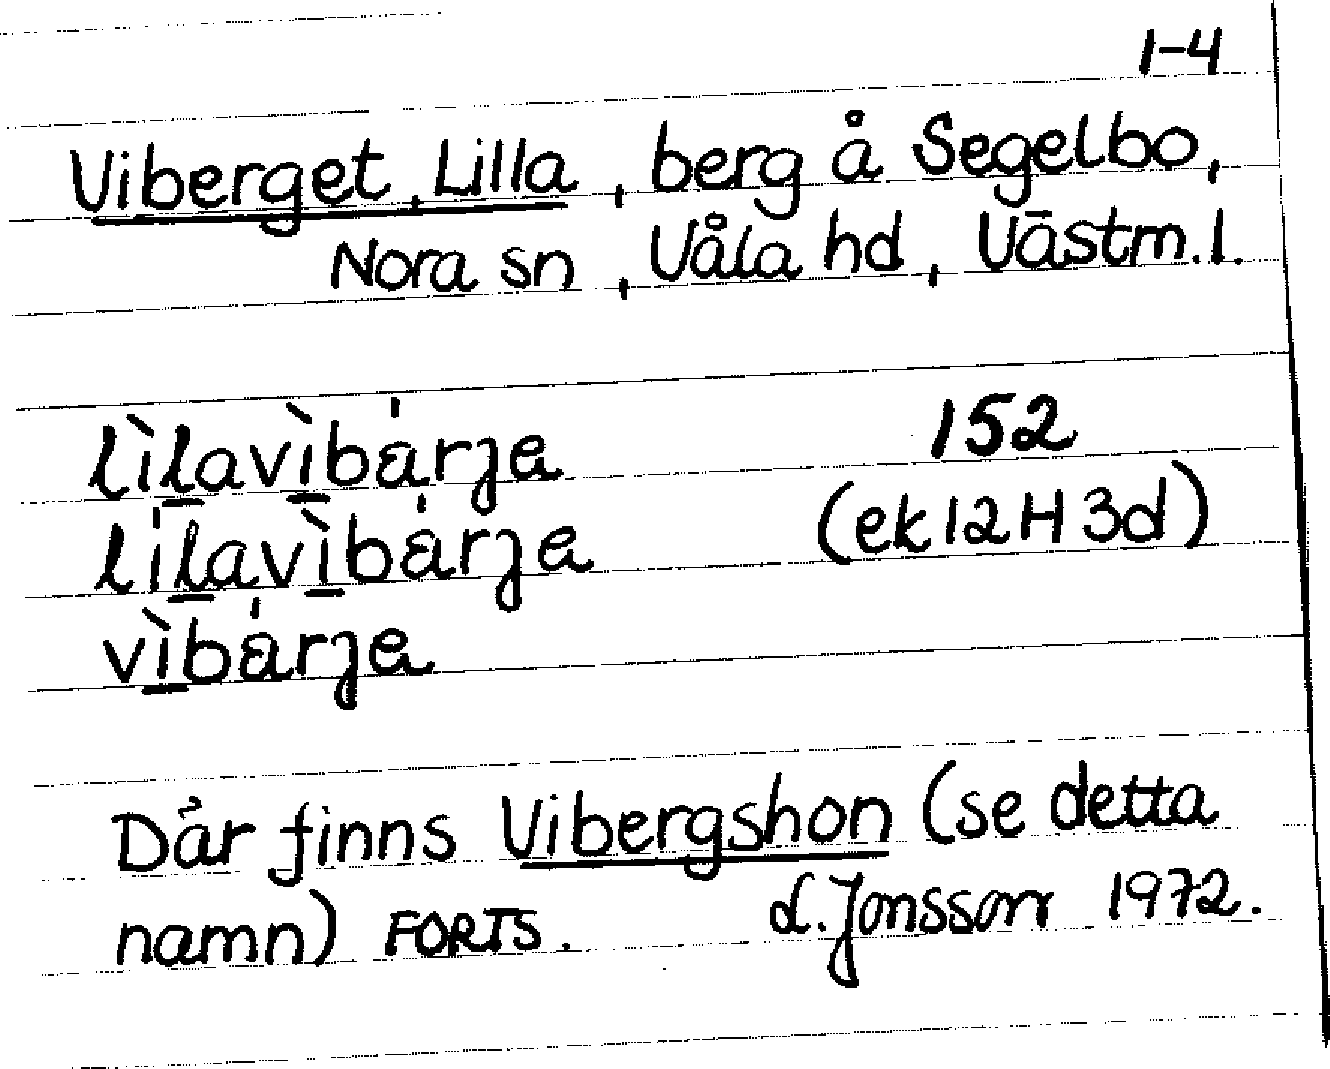 1-4
Viberget, Lilla, berg å Segelbo,
Nora sn, Våla hd, Västm. l.
lìlavìbárje 152
lílavìbárje (ek 12H 3d)
vìbárje
Där finns Vibergshon (se detta
namn) FORTS. L. Jonsson 1972.